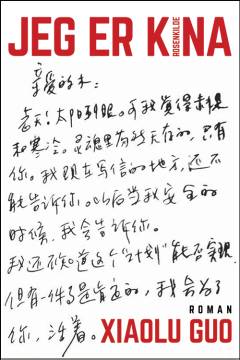 JEG ER KINA
ROSENKILDE
亲爱的木:
老天!太阳刺眼。可我觉得
和寒冷。灵魂里 存的,只有
你。我现在写信的地方,还不
能告诉你。以后当我安全的
时候,我会告诉你。
我还不知道这个"计划"能否实现。
但有一件事是肯定的,我会为了
你,活着。
ROMAN
XIAOLU GUO